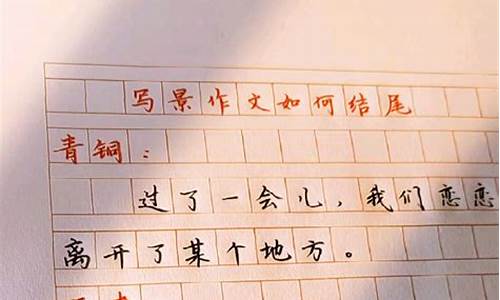 写景作文如何结尾
青铜：
过了一会儿，我们恋恋
离开了某个地方。